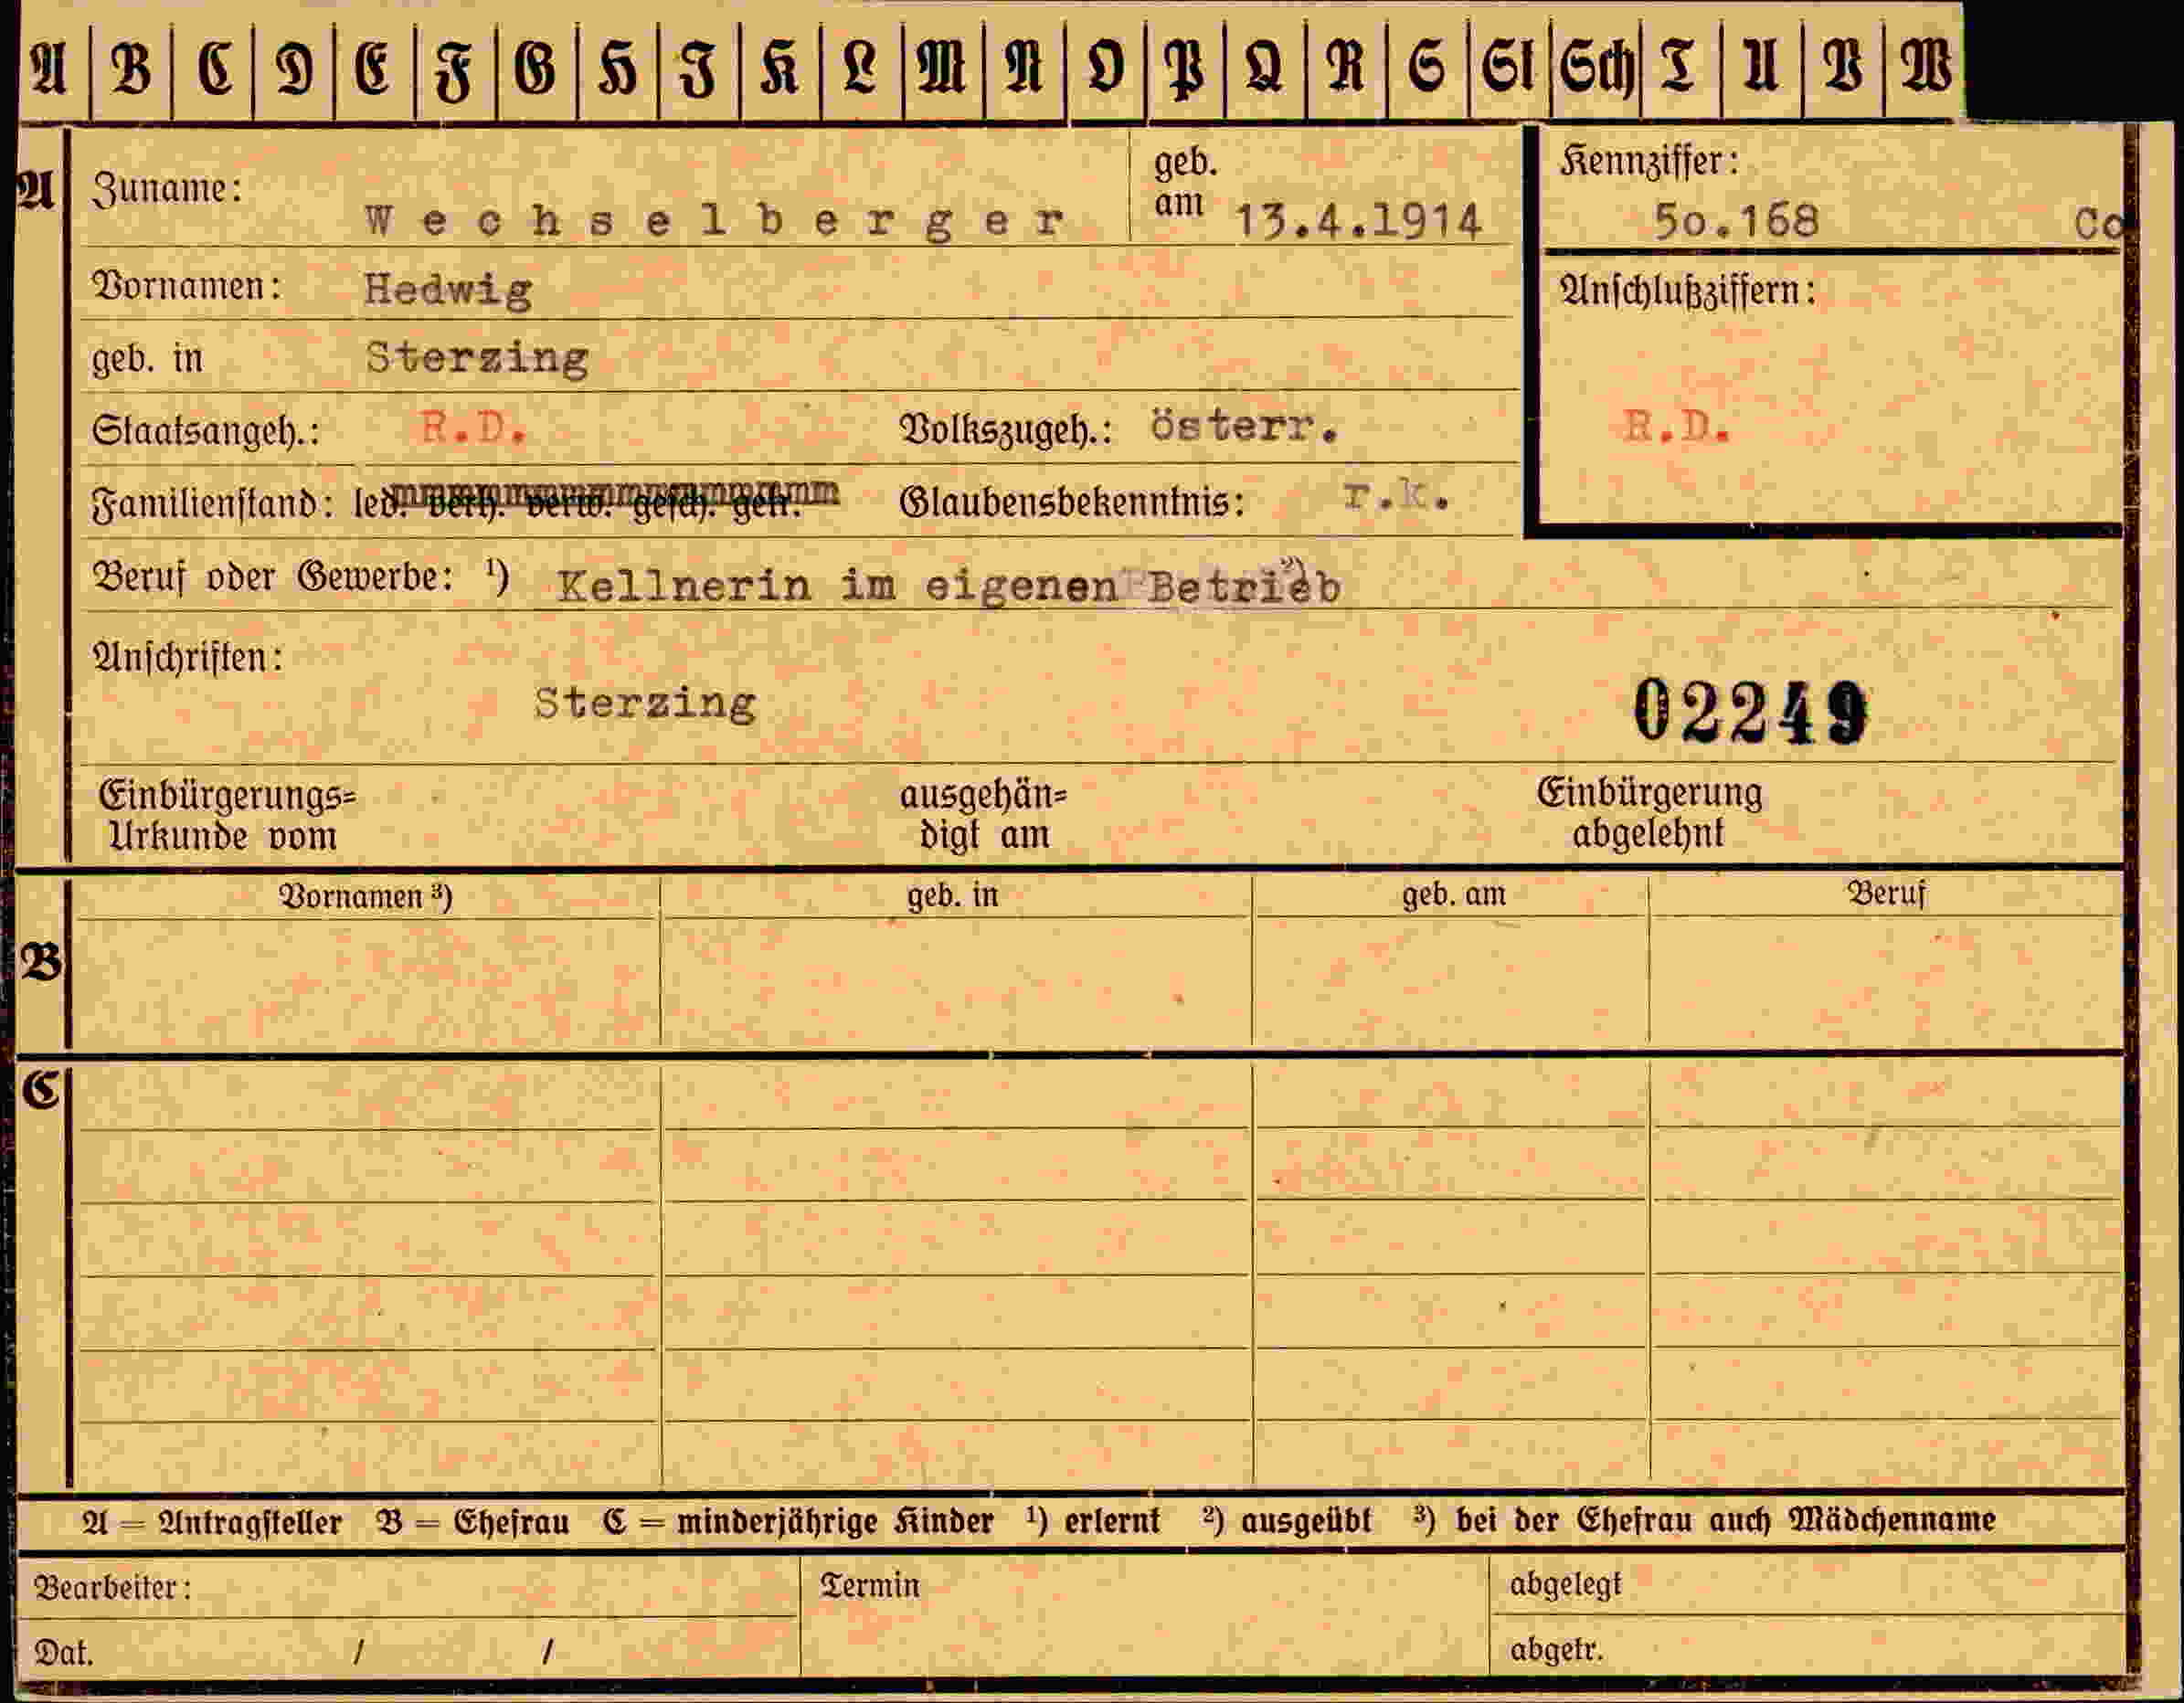 A B C D E F G H I K L M N O P Q R S St Sch T U V W
A Zuname: Wechselberger geb. am 13.4.1914 Kennziffer: 5o.168 Co
Vornamen: Hedwig Anschlußziffern:
geb. in Sterzing
Staatsangeh.: R.D. Volkszugeh.: österr. R.D.
Familienstand: led. verh. verw. gesch. getr. Glaubensbekenntnis: r.k.
Beruf oder Gewerbe: ¹) Kellnerin im eigenen Betrieb ²)
Anschriften:
Sterzing 02249
Einbürgerungs= ausgehän= Einbürgerung
Urkunde vom digt am abgelehnt
Vornamen ³) geb. in geb. am Beruf
B
C
A = Antragsteller B = Ehefrau C = minderjährige Kinder ¹) erlernt ²) ausgeübt ³) bei der Ehefrau auch Mädchenname
Bearbeiter: Termin abgelegt
Dat. / / abgetr.